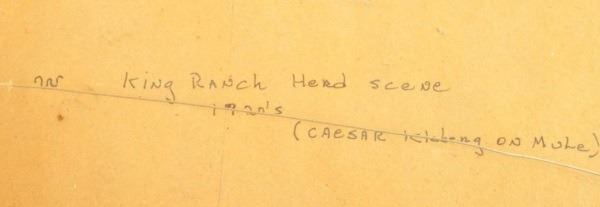 King Ranch Herd scene
1920's
(CAESAR Kleberg ON Mule)